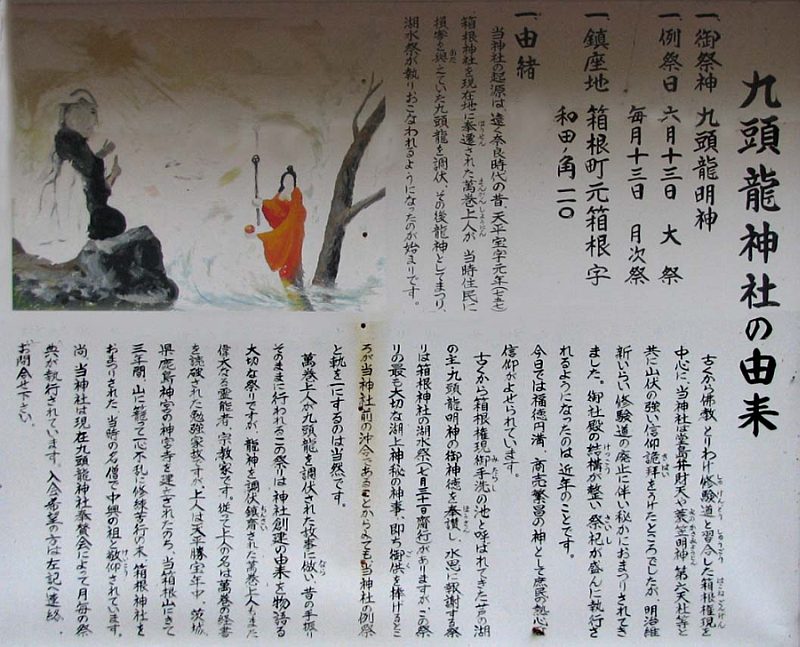 九頭龍神社の由来
一、御祭神 九頭龍明神
一、例祭日 六月十三日 大祭
毎月十三日 月次祭
一、鎮座地 箱根町元箱根字
和田ノ角一二〇
一、由緒
当神社の起源は、遠く奈良時代の昔、天平宝字元年(七五七)
箱根神社を現在地に奉遷された萬巻上人が、当時住民に
損害を與えていた九頭龍を調伏、その後龍神としてまつり、
湖水祭が執りおこなわれるようになったのが始まりです。
古くから佛教、とりわけ修験道と習合した箱根権現を
中心に、当神社は堂島弁財天や蓑笠明神、第六天社等と
共に山伏の強い信仰詭拜をうけたところでしたが、明治維
新いらい修験道の廃止に伴い秘かにおまつりされてき
ました。御社殿の結構が整い祭祀が盛んに執行さ
れるようになったのは近年のことです。
今日では福徳円満、商売繁昌の神として庶民の熱心な
信仰がよせられています。
古くから箱根権現御手洗の池と呼ばれてきた芦の湖
の主、九頭龍明神の御神徳を奉讃し、水恩に報謝する祭
りは箱根神社の湖水祭(七月三十一日齋行)がありますが、この祭
りの最も大切な湖上神秘の神事、即ち御供を捧げるとこ
ろが当神社前の沖合であることからみても当神社の例祭
と軌を一にするのは当然です。
萬巻上人が九頭龍を調伏された故事に倣い、昔の手振り
そのままに行われるこの祭りは神社創建の由来を物語る
大切な祭りですが、龍神を調伏鎮斎された萬巻上人もまた
偉大なる霊能者、宗教家です。従って上人の名は萬巻の経書
を読破された勉強家故ですが、上人は天平勝宝年中、茨城
県鹿島神宮の神宮寺を建立されたのち、当箱根山にきて
三年間、山に籠って一心不乱に修練苦行の末、箱根神社を
お祀りされた、当時の名僧で中興の祖と敬仰されています。
尚、当神社は現在九頭龍神社奉賛会によって月毎の祭
典が執行されています。入会希望の方は左記へ連絡、
お問合せ下さい。